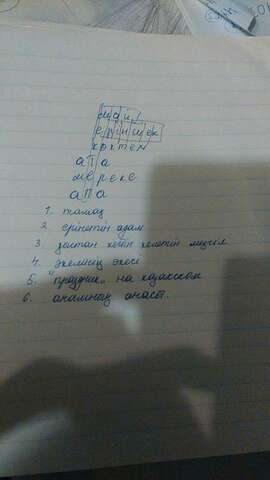 май
еріншек
көктем
ата
мереке
апа
1. тамақ
2. ерінетін адам
3. қыстан кейін келетін мезгіл
4. әкемнің әкесі
5. "праздник" на казахском
6. анамның анасы.